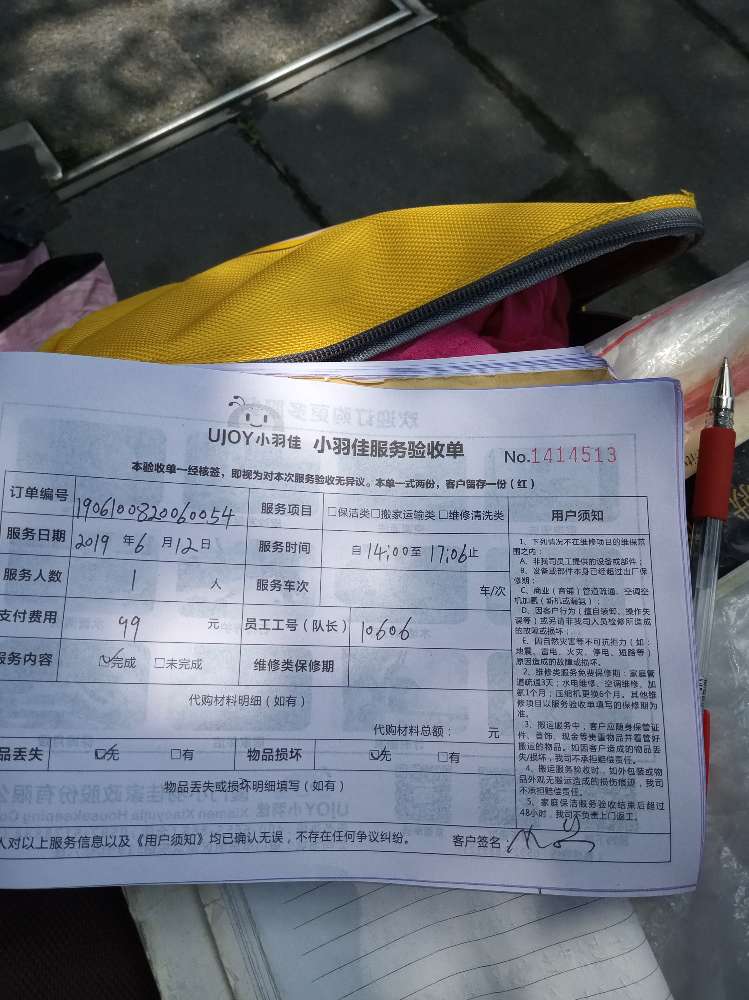 UJOY小羽佳 小羽佳服务验收单 No.1414513
本验收单一经核签，即视为对本次服务验收无异议。本单一式两份，客户留存一份（红）
订单编号 1906100820060054 服务项目 □保洁类□搬家运输类□维修清洗类
服务日期 2019 年 6 月 12 日 服务时间 自 14:00 至 17:06 止
服务人数 1 人 服务车次 车/次
支付费用 99 元 员工工号（队长） 10606
服务内容 ☑完成 □未完成 维修类保修期
代购材料明细（如有）
代购材料总额： 元
品丢失 ☑无 □有 物品损坏 ☑无 □有
物品丢失或损坏明细填写（如有）
人对以上服务信息以及《用户须知》均已确认无误，不存在任何争议纠纷。 客户签名：
用户须知
1、下列情况不在维修项目的维保范
围之内：
A、非我司员工提供的设备或部件；
B、设备或部件本身已经超过出厂保
修期；
C、商业（商铺）管道疏通、空调空
机加氟（新机或漏氟）；
D、因客户行为（擅自装卸、操作失
误等）或另请非我司人员检修所造成
的故障或损坏；
E、因自然灾害等不可抗拒力（如：
地震、雷电、火灾、停电、短路等）
原因造成的故障或损坏。
2、维修类服务免费保修期：家庭管
道疏通3天；水电维修、空调维修、加
氟1个月；压缩机更换6个月。其他维
修项目以服务验收单填写的保修期为
准。
3、搬运服务中，客户应随身保管证
件、首饰、现金等贵重物品并看管好
搬运的物品。如因客户造成的物品丢
失/损坏，我司不承担赔偿责任。
4、搬运服务验收时，如外包装或物
品外观无搬运造成的损伤痕迹，我司
不承担赔偿责任。
5、家庭保洁服务验收结束后超过
48小时，我司不负责上门返工。